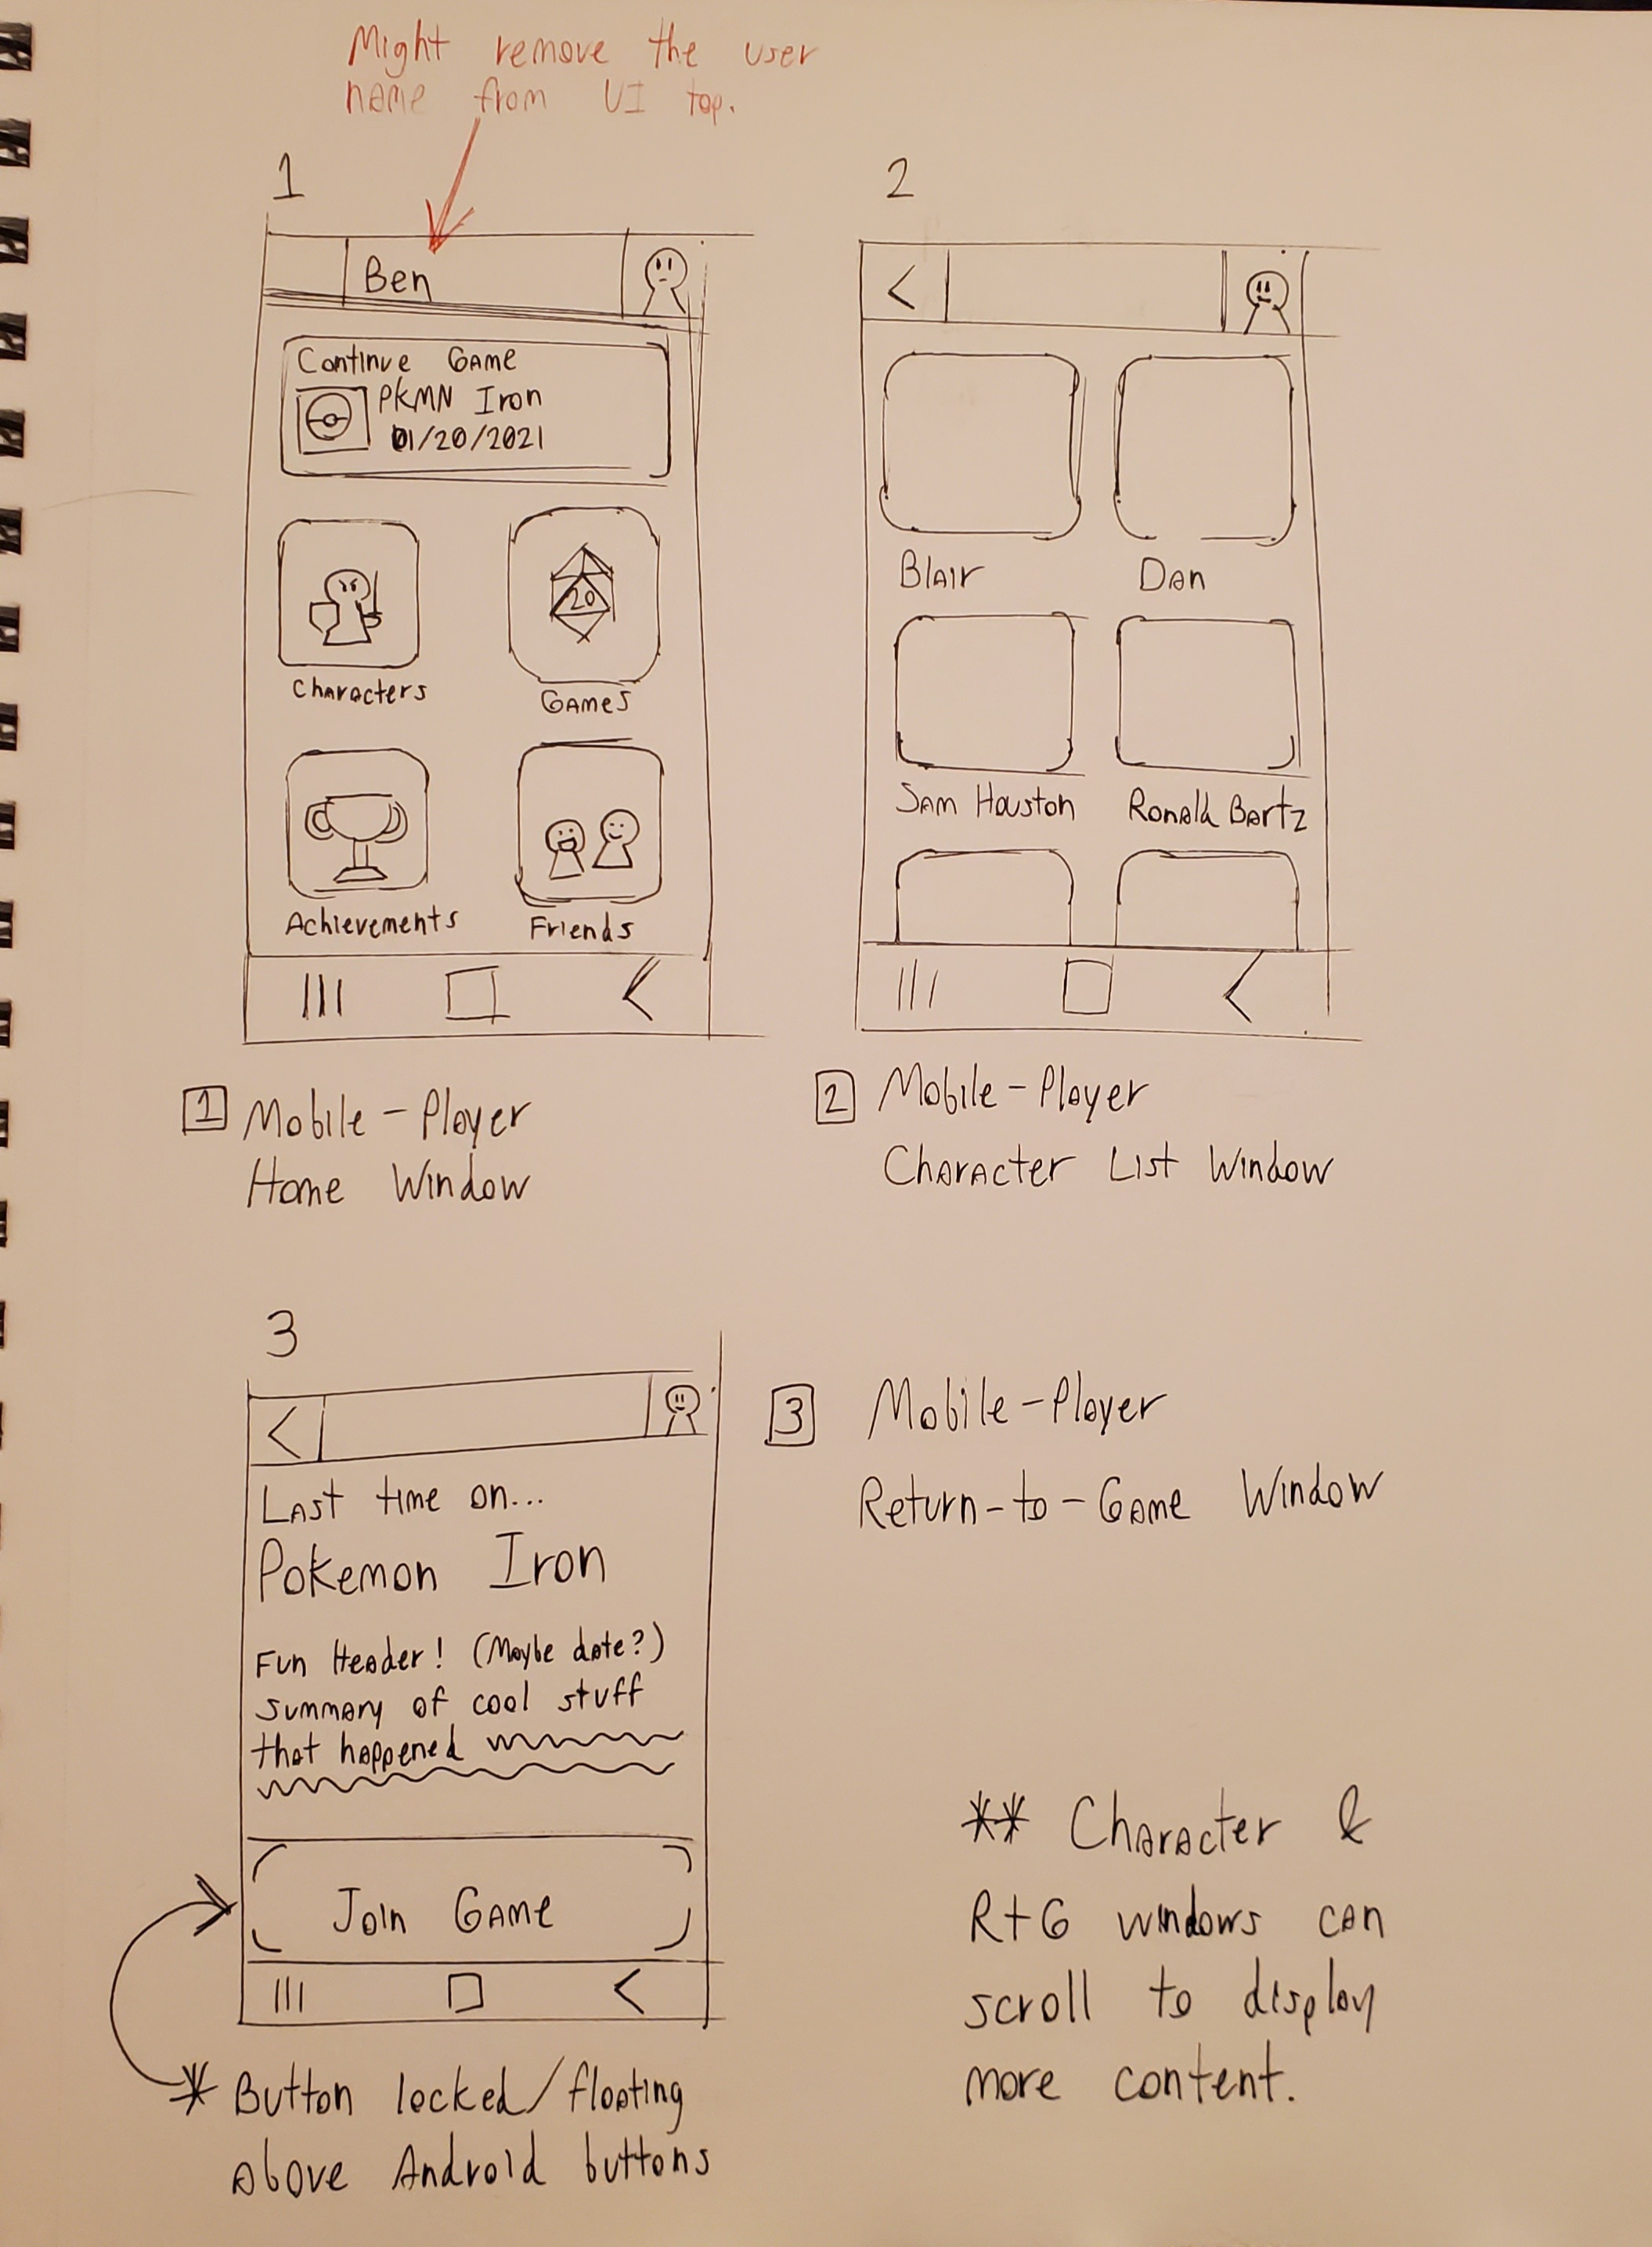 Might remove the user
name from UI top.
1
Ben
Continue Game
PKMN Iron
01/20/2021
20
Characters
Games
Achievements
Friends
1 Mobile - Player
Home Window
2
Blair
Dan
Sam Houston
Ronald Bartz
2 Mobile - Player
Character List Window
3
Last time on...
Pokemon Iron
Fun Header! (Maybe date?)
summary of cool stuff
that happened
Join Game
* Button locked/floating
above Android buttons
3 Mobile - Player
Return-to-Game Window
** Character &
RtG windows can
scroll to display
more content.